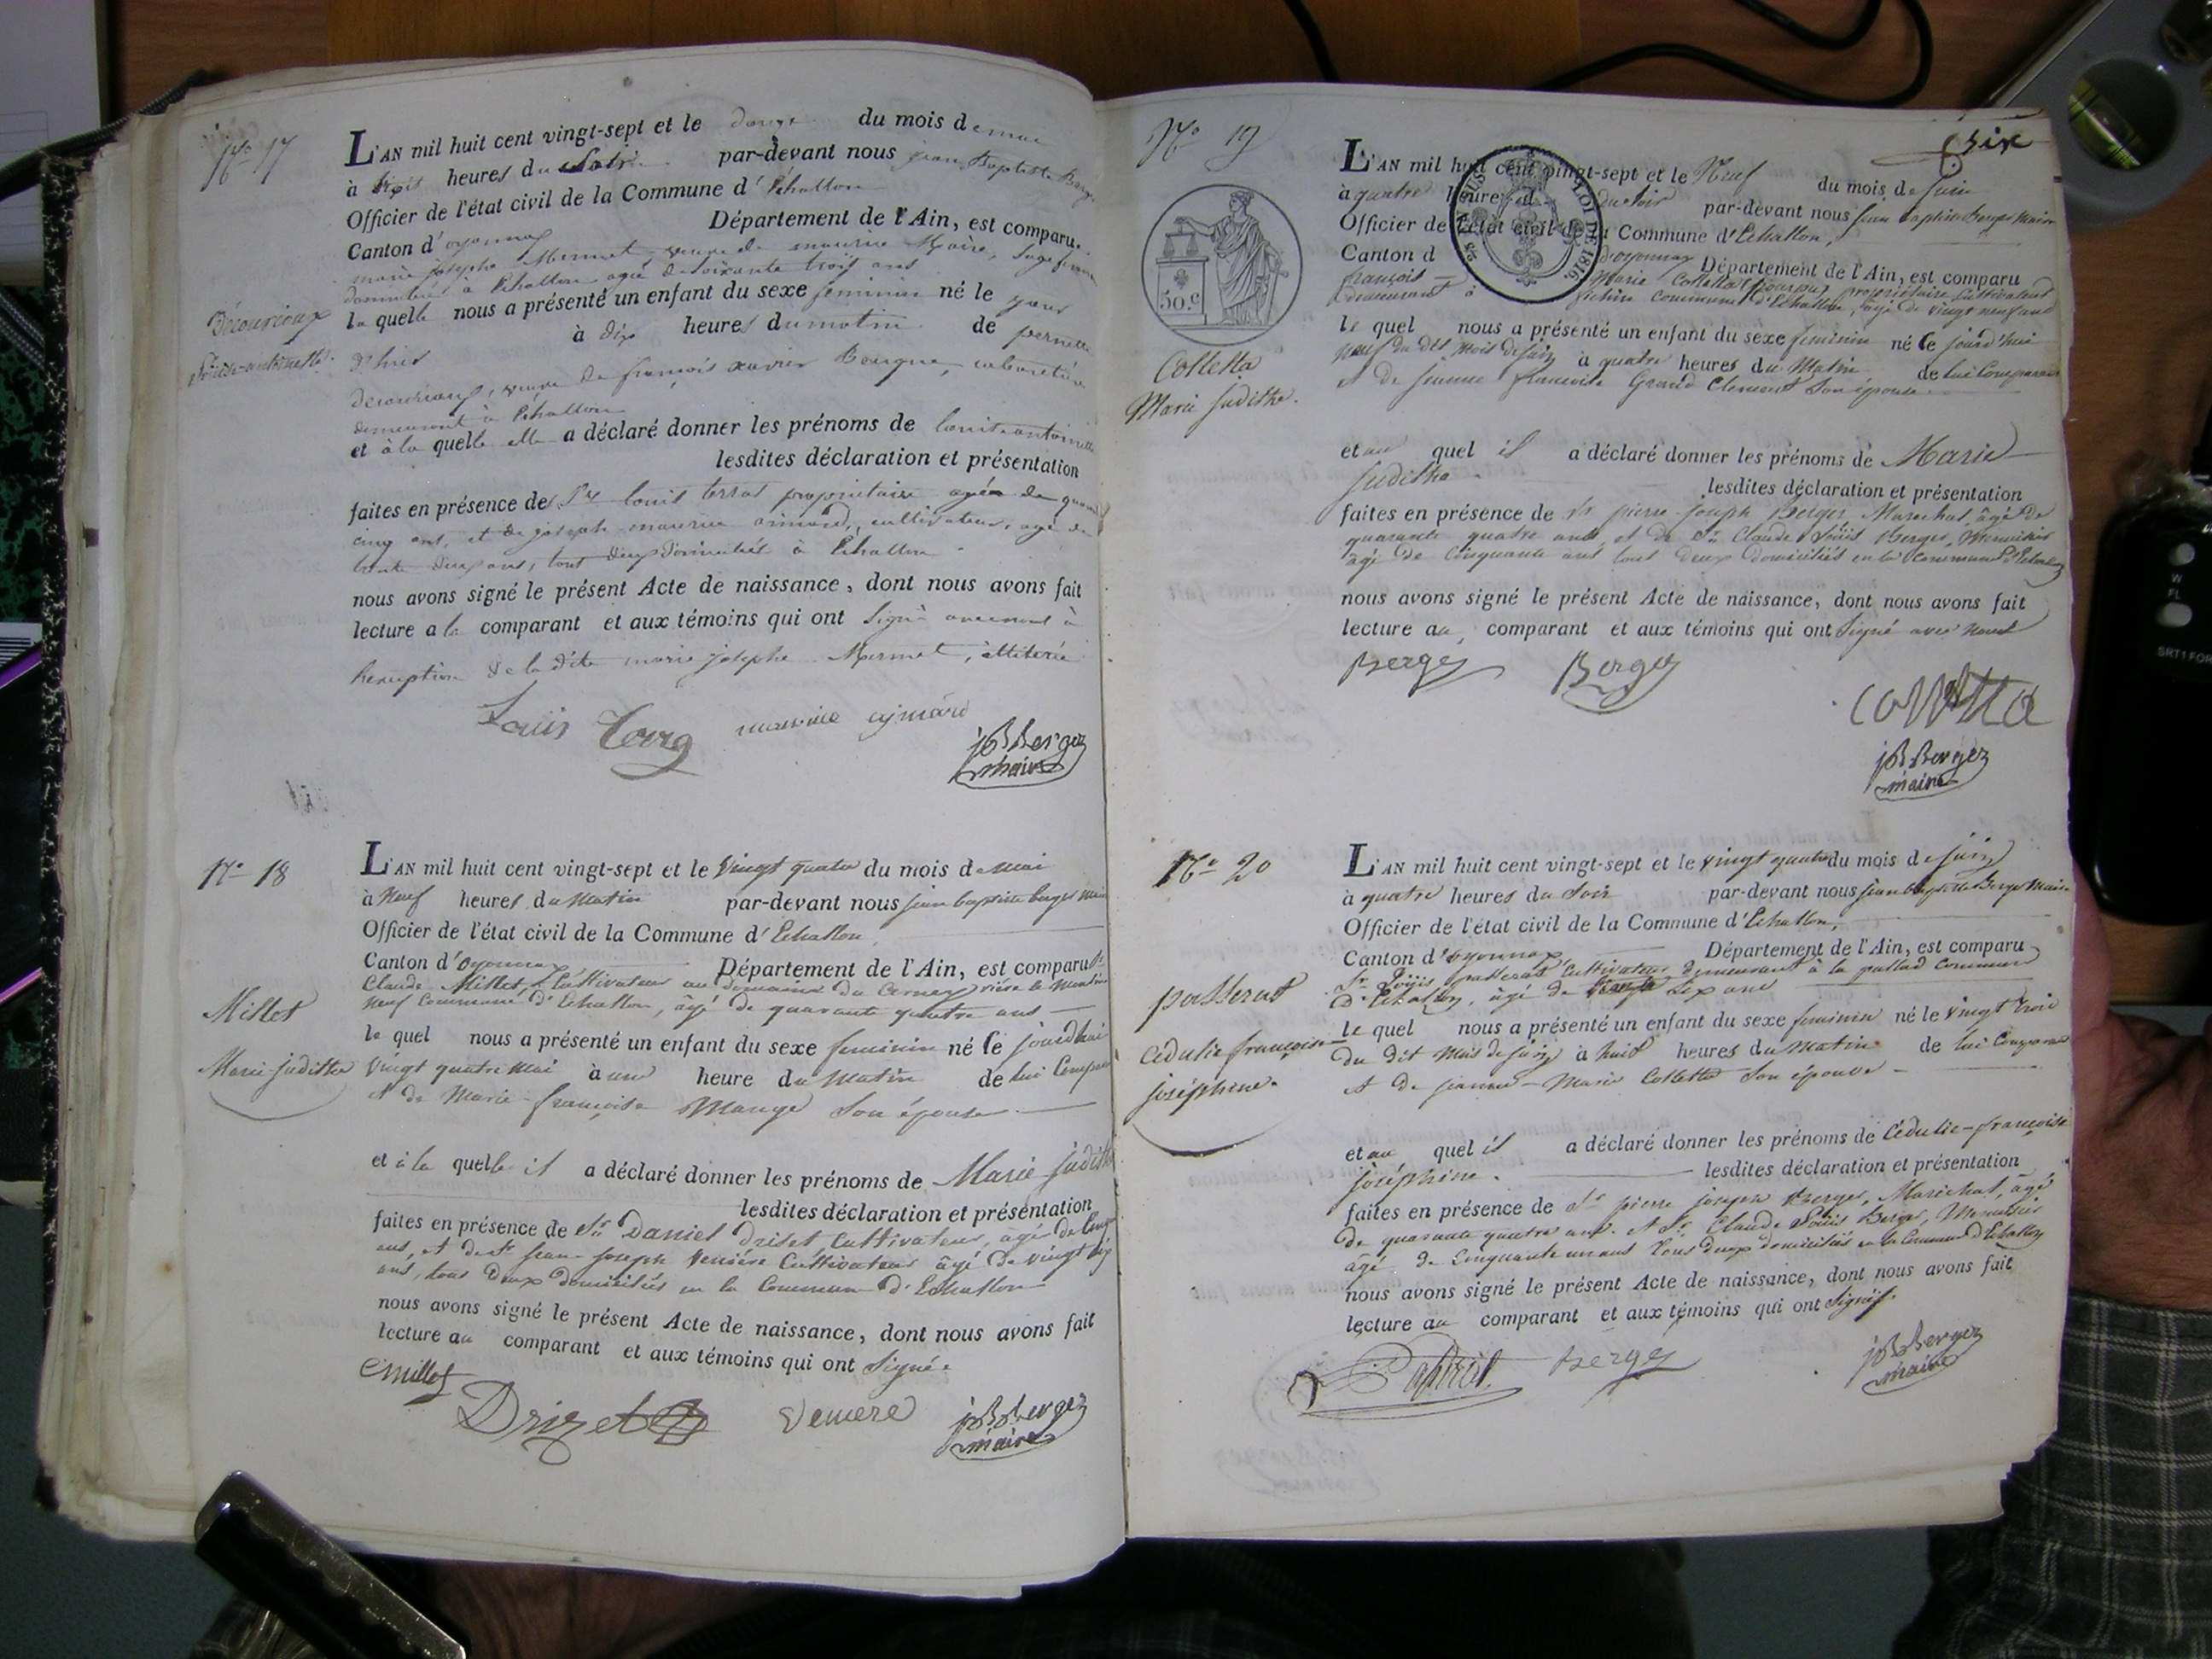 N.° 17
L'AN mil huit cent vingt-sept et le douze du mois de mai
à trois heures du Soir par-devant nous jean Baptiste Berger
Officier de l'état civil de la Commune d'Echallon
Canton d'oyonnax Département de l'Ain, est comparu
marie josephe Mermet, veuve de maurice Maire, Sage femme
domiciliée à Echallon agée de soixante trois ans
la quelle nous a présenté un enfant du sexe feminin né le jour
d'hier à dix heures du matin de pernette
decouroux, veuve de françois xavier Bouque, cabaretière
demeurant à Echallon
Découroux
Louise-antoinette
et à la quelle elle a déclaré donner les prénoms de louise antoinette
lesdites déclaration et présentation
faites en présence de Sr louis terras propriétaire agé de quarante
cinq ans, et de joseph maurice aimard, cultivateur, agé de
trente deux ans, tout deux domiciliés à Echallon
nous avons signé le présent Acte de naissance, dont nous avons fait
lecture a la comparant et aux témoins qui ont Signé avec nous à
l'exception de la dite marie josephe Mermet, illitérée
Louis maurice aymard
jB Berger
maire
N.° 18
L'AN mil huit cent vingt-sept et le vingt quatre du mois de mai
à Neuf heures du Matin par-devant nous jean baptiste berger maire
Officier de l'état civil de la Commune d'Echallon,
Canton d'Oyonnax Département de l'Ain, est comparu Sr
Claude Millet, Cultivateur au domaine du Cernay rière le Moulin
Neuf Commune d'Echallon, âgé de quarante quatre ans
Millet
Marie judithe
le quel nous a présenté un enfant du sexe feminin né le jourd'hui
vingt quatre mai à une heure du Matin de lui Comparant
et de Marie-françoise Mauge Son épouse
et à la quelle il a déclaré donner les prénoms de Marie judithe
lesdites déclaration et présentation
faites en présence de Sr Daniel Driset Cultivateur, âgé de
ans, et de Sr jean-joseph Veniere Cultivateur âgé de vingt
ans, tous deux domiciliés en la Commune d'Echallon
nous avons signé le présent Acte de naissance, dont nous avons fait
lecture au comparant et aux témoins qui ont Signé.
Cmillet
Drizet Veniere jB Berger
maire
six
N.° 19
50.c
LOI DE 1816.
L'AN mil huit cent vingt-sept et le Neuf du mois de juin
à quatre heures du soir par-devant nous jean baptiste Berger Maire
Officier de l'état civil de la Commune d'Echallon,
Canton d'oyonnax Département de l'Ain, est comparu
françois Marie Colletta propriétaire Cultivateur
demeurant à commune d'Echallon, âgé de vingt neuf ans
Colletta
Marie judithe.
le quel nous a présenté un enfant du sexe feminin né le jourd'hui
neuf du dit mois de juin à quatre heures du Matin de lui Comparant
et de jeanne françoise Grand Clement Son épouse
et au quel il a déclaré donner les prénoms de Marie
judithe. lesdites déclaration et présentation
faites en présence de Sr pierre joseph Berger, Marechal, âgé de
quarante quatre ans et de Sr Claude Loüis Berger, Menuisier
âgé de Cinquante ans tous deux domiciliés en la Commune d'Echallon
nous avons signé le présent Acte de naissance, dont nous avons fait
lecture au comparant et aux témoins qui ont Signé avec nous
Berger Berger
Colletta
jB Berger
maire
N.° 20
L'AN mil huit cent vingt-sept et le vingt quatre du mois de juin
à quatre heures du Soir par-devant nous jean baptiste Berger Maire
Officier de l'état civil de la Commune d'Echallon,
Canton d'oyonnax Département de l'Ain, est comparu
Sr Loüis passerat Cultivateur demeurant à la commune
d'Echallon, âgé de six ans
passerat
Cédulie françoise
joséphine.
le quel nous a présenté un enfant du sexe feminin né le vingt trois
du dit mois de juin à huit heures du Matin de lui Comparant
et de jeanne-Marie Colletta Son épouse
et au quel il a déclaré donner les prénoms de Cédulie-françoise
joséphine. lesdites déclaration et présentation
faites en présence de Sr pierre joseph Berger, Marechal, âgé
de quarante quatre ans. et Sr Claude Loüis Berger, Menuisier
âgé de Cinquante un ans tous deux domiciliés en la Commune d'Echallon
nous avons signé le présent Acte de naissance, dont nous avons fait
lecture au comparant et aux témoins qui ont Signés.
Berger
jB Berger
maire